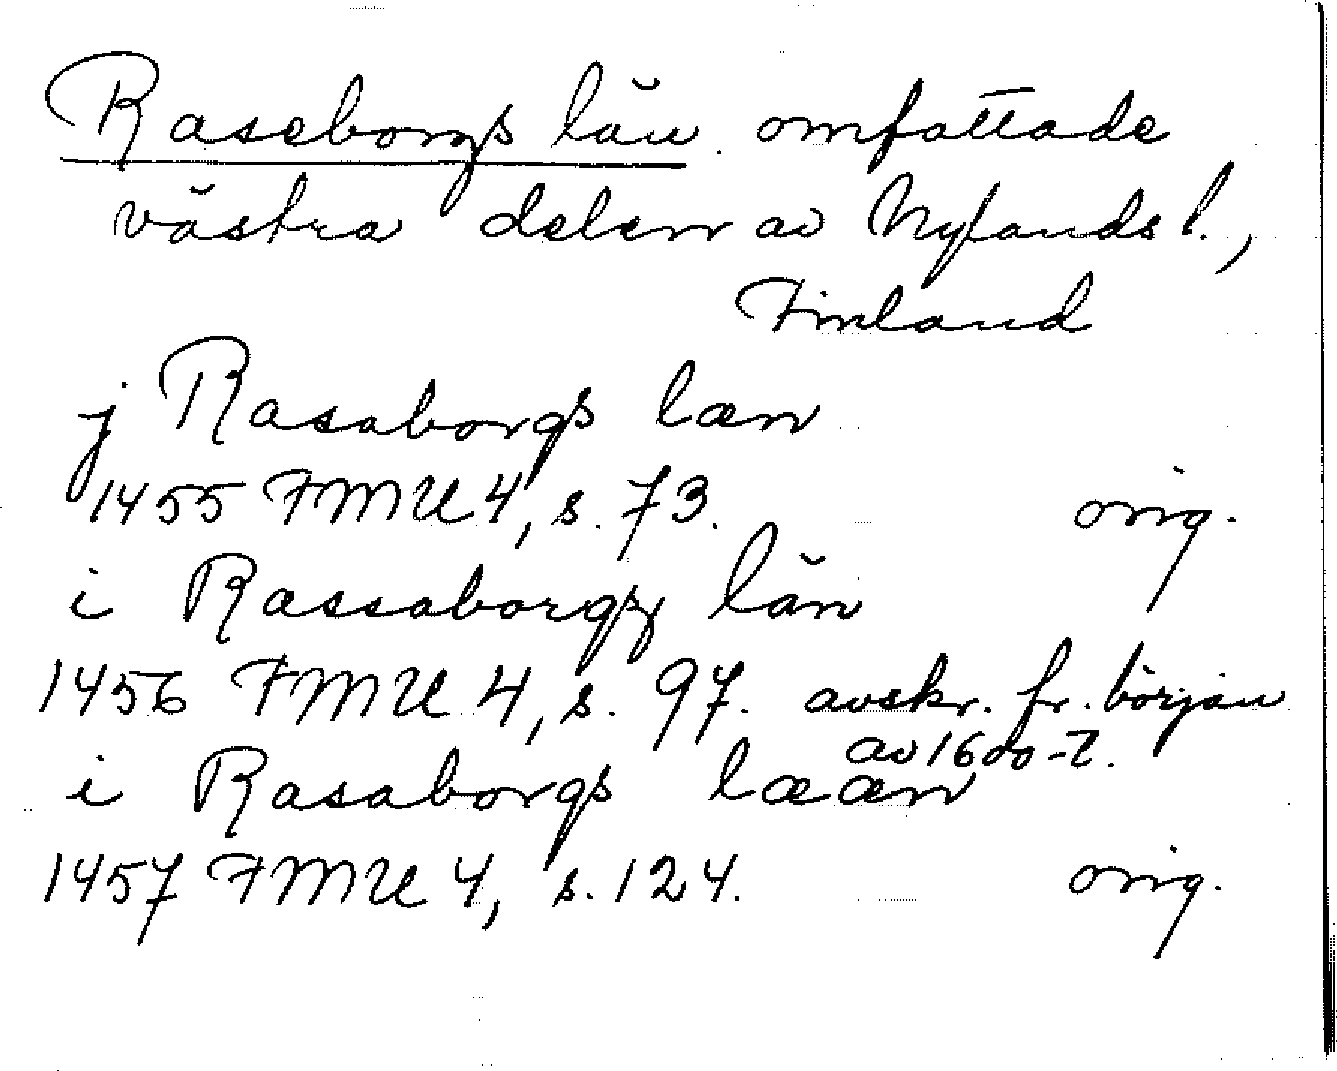 Raseborgs län omfattade
västra delen av Nylands l.,
Finland
j Rasaborgs læn
1455 FMU 4, s. 73. orig.
i Rassaborgx län
1456 FMU 4, s. 97. avskr. fr. början
av 1600-t.
i Rasaborgs lææn
1457 FMU 4, s. 124. orig.